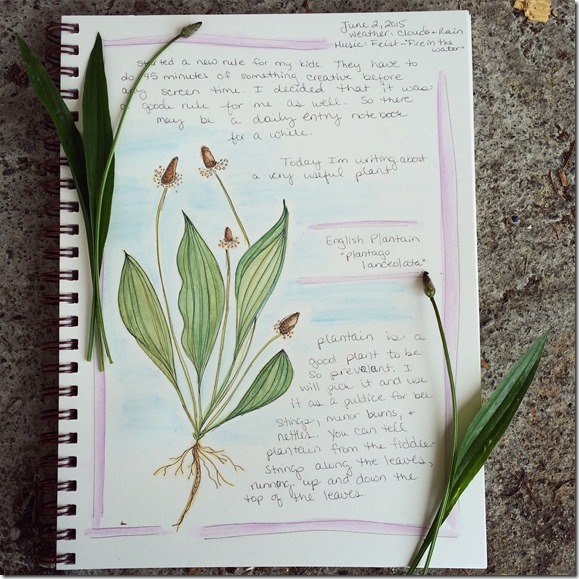 June 2, 2015
weather: clouds + Rain
Music: Feist - "Fire in the
water"
Started a new rule for my kids. They have to
do 45 minutes of something creative before
any screen time. I decided that it was
a good rule for me as well. So there
may be a daily entry notebook
for a while.
Today I'm writing about
a very useful plant
English Plantain
"plantago
lanceolata"
plantain is a
good plant to be
so prevalant. I
will pick it and use
it as a pultice for bee
stings, minor burns, +
nettles. You can tell
plantain from the fiddle
strings along the leaves,
running up and down the
top of the leaves.